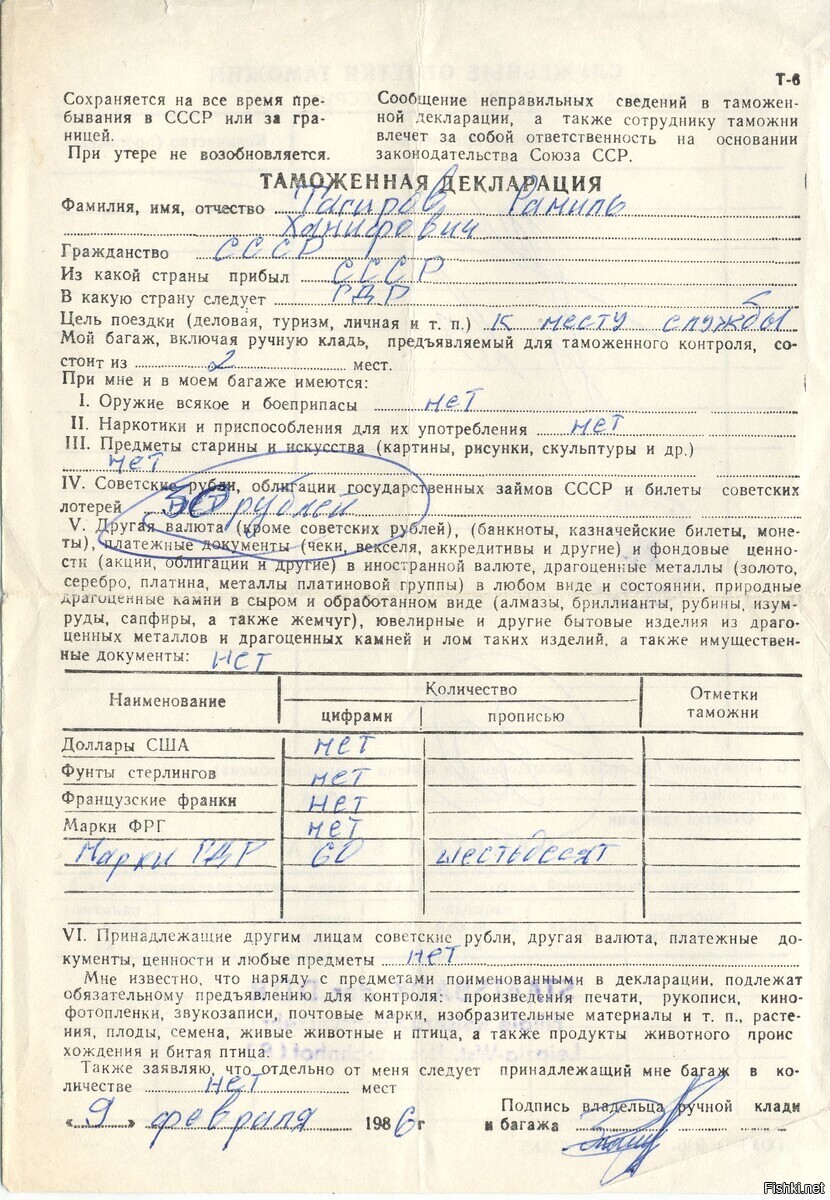 Т-6
Сохраняется на все время пре-
бывания в СССР или за гра-
ницей.
При утере не возобновляется.
Сообщение неправильных сведений в таможен-
ной декларации, а также сотруднику таможни
влечет за собой ответственность на основании
законодательства Союза ССР.
ТАМОЖЕННАЯ ДЕКЛАРАЦИЯ
Фамилия, имя, отчество Рамиль
Ханифович
Гражданство СССР
Из какой страны прибыл СССР
В какую страну следует ГДР
Цель поездки (деловая, туризм, личная и т. п.) к месту службы
Мой багаж, включая ручную кладь, предъявляемый для таможенного контроля, со-
стоит из 2 мест.
При мне и в моем багаже имеются:
I. Оружие всякое и боеприпасы нет
II. Наркотики и приспособления для их употребления нет
III. Предметы старины и искусства (картины, рисунки, скульптуры и др.)
нет
IV. Советские рубли, облигации государственных займов СССР и билеты советских
лотерей 30 рублей
V. Другая валюта (кроме советских рублей), (банкноты, казначейские билеты, моне-
ты), платежные документы (чеки, векселя, аккредитивы и другие) и фондовые ценно-
сти (акции, облигации и другие) в иностранной валюте, драгоценные металлы (золото,
серебро, платина, металлы платиновой группы) в любом виде и состоянии, природные
драгоценные камни в сыром и обработанном виде (алмазы, бриллианты, рубины, изум-
руды, сапфиры, а также жемчуг), ювелирные и другие бытовые изделия из драго-
ценных металлов и драгоценных камней и лом таких изделий, а также имуществен-
ные документы: нет
Наименование Количество Отметки таможни
цифрами прописью
Доллары США нет
Фунты стерлингов нет
Французские франки нет
Марки ФРГ нет
Марки ГДР 60 шестьдесят
VI. Принадлежащие другим лицам советские рубли, другая валюта, платежные до-
кументы, ценности и любые предметы нет
Мне известно, что наряду с предметами поименованными в декларации, подлежат
обязательному предъявлению для контроля: произведения печати, рукописи, кино-
фотопленки, звукозаписи, почтовые марки, изобразительные материалы и т. п., расте-
ния, плоды, семена, живые животные и птица, а также продукты животного проис
хождения и битая птица.
Также заявляю, что отдельно от меня следует принадлежащий мне багаж в ко-
личестве нет мест
«9» февраля 1986 г
Подпись владельца ручной клади
и багажа
Fishki.net